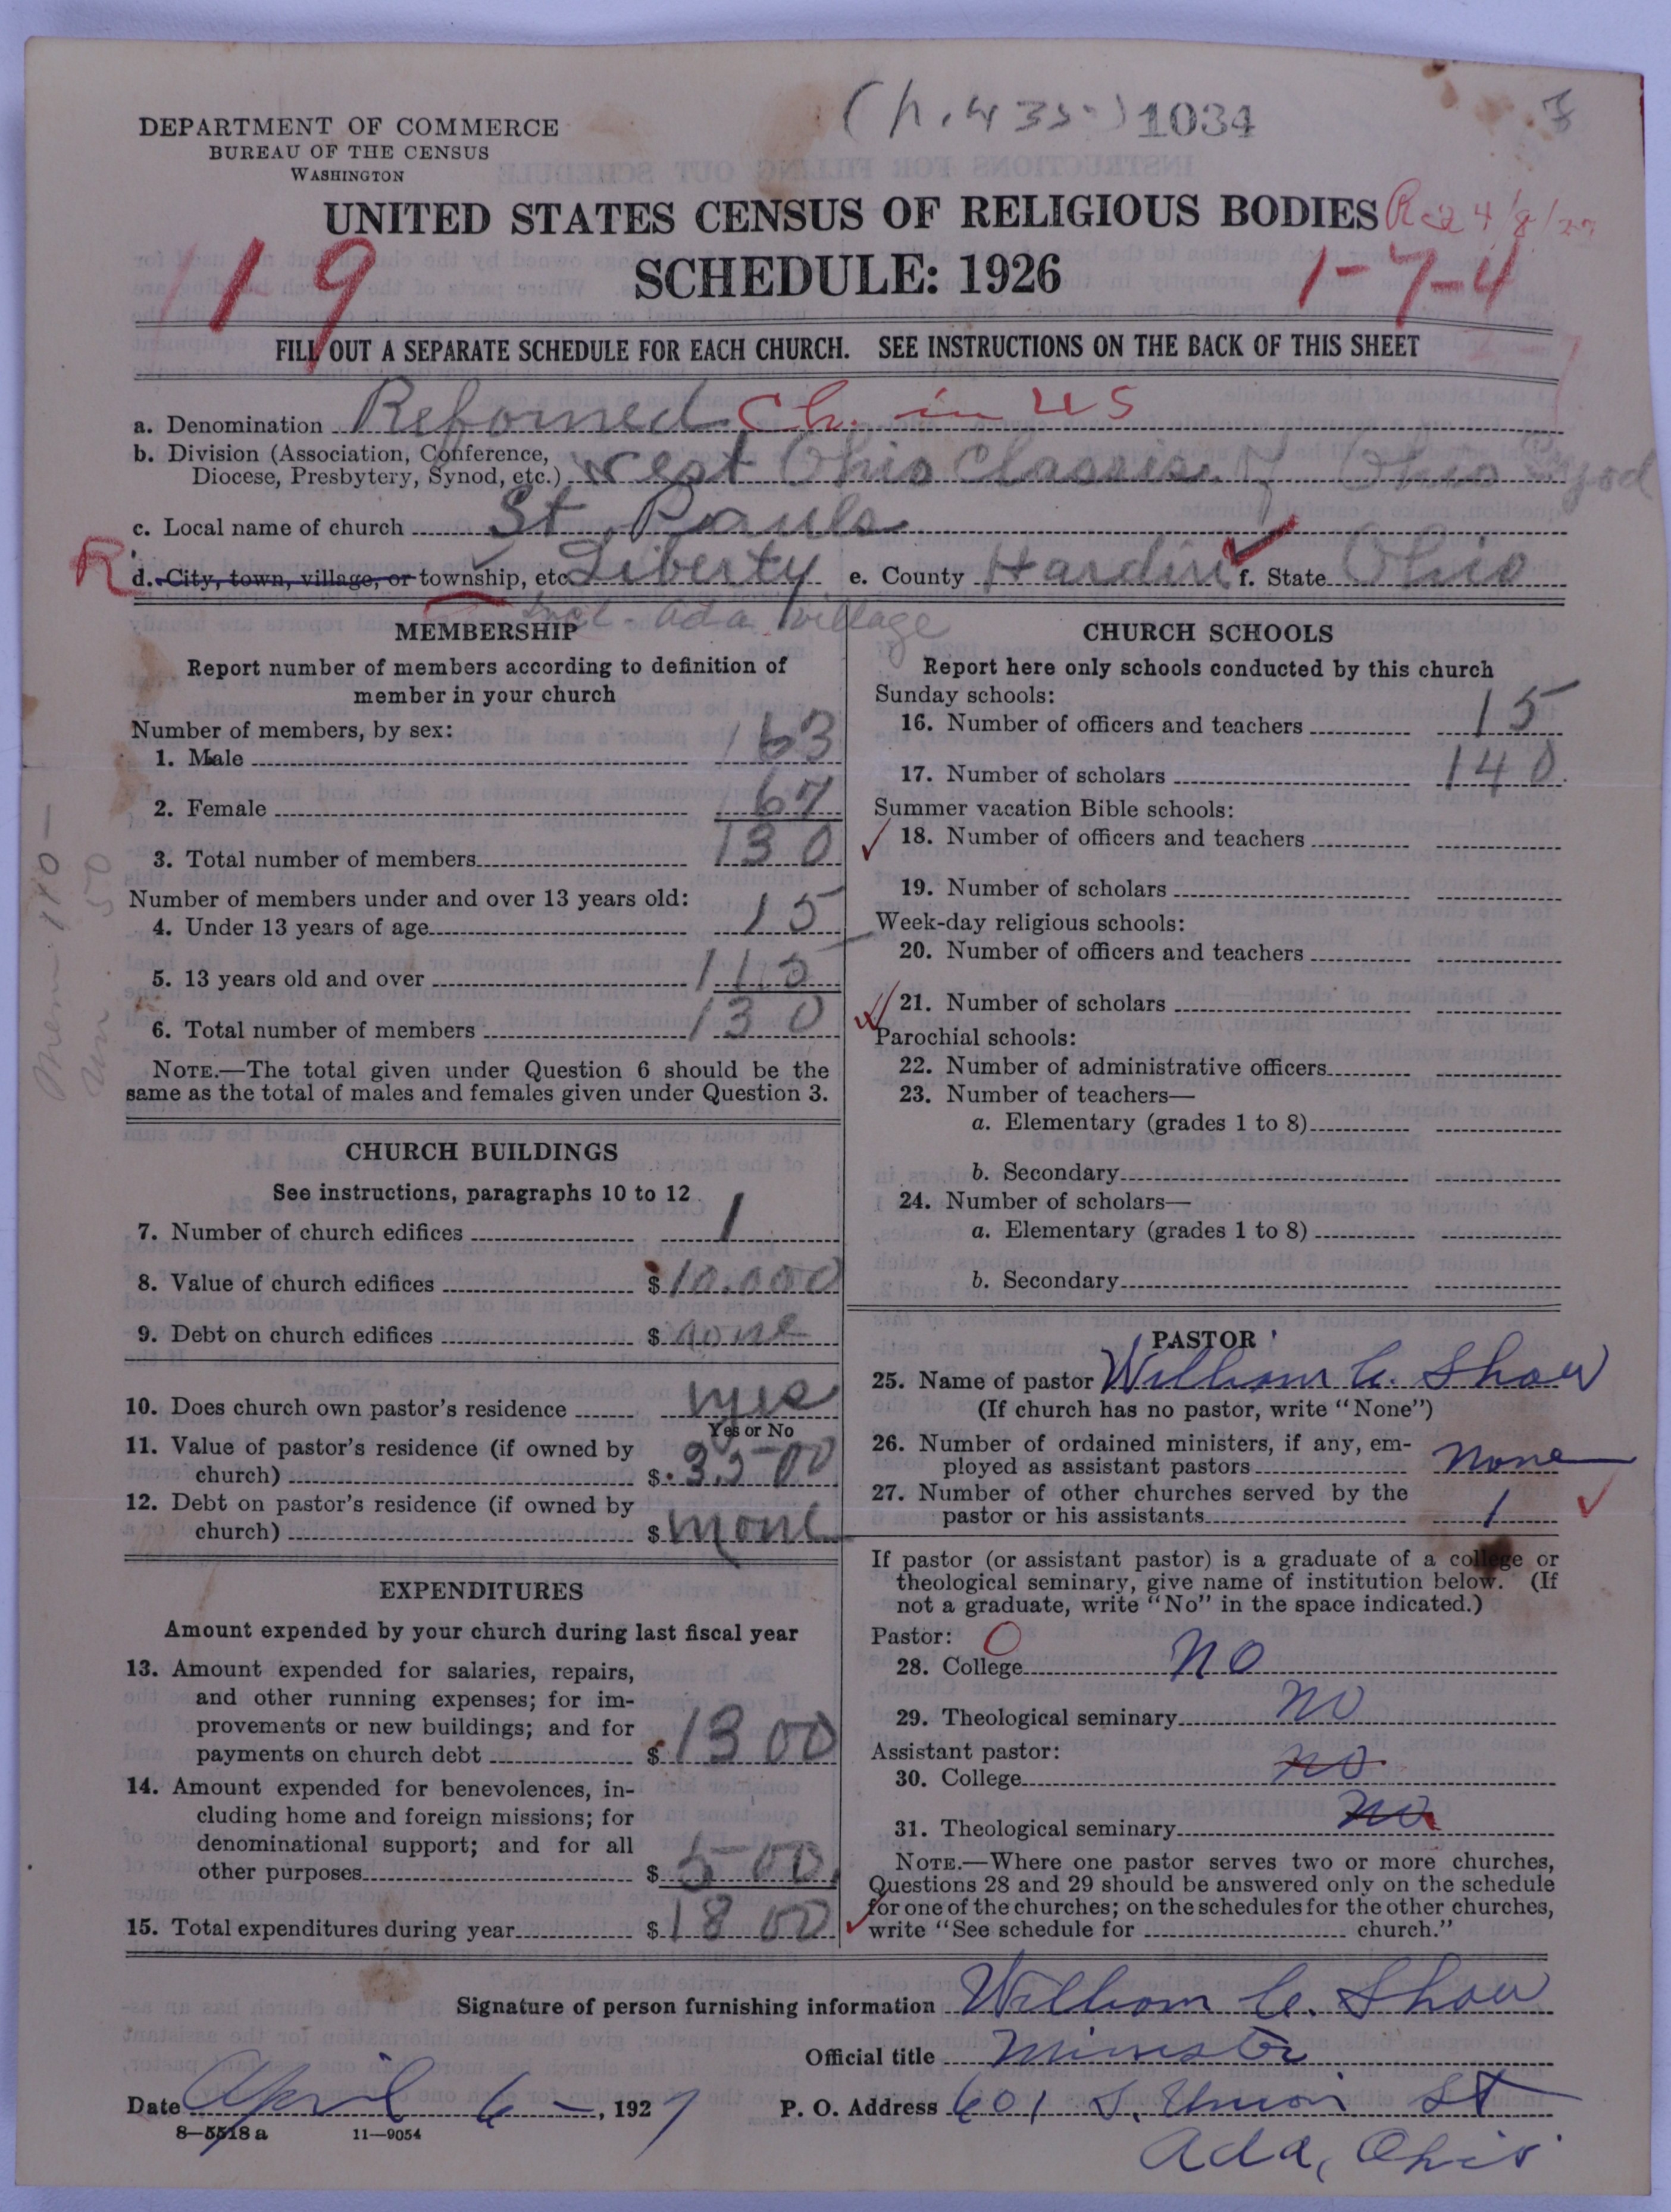 (p. 435) 1034
DEPARTMENT OF COMMERCE
BUREAU OF THE CENSUS
WASHINGTON
UNITED STATES CENSUS OF RELIGIOUS BODIES
119 SCHEDULE: 1926 1-7-4
FILL OUT A SEPARATE SCHEDULE FOR EACH CHURCH. SEE INSTRUCTIONS ON THE BACK OF THIS SHEET
a. Denomination Reformed Ch. in US
b. Division (Association, Conference,
Diocese, Presbytery, Synod, etc.) West Ohio Classis of Ohio Synod
c. Local name of church St Pauls
R d. City, town, village, or township, etc. Liberty e. County Hardin f. State Ohio
Incl - Ada village
MEMBERSHIP
Report number of members according to definition of
member in your church
Number of members, by sex:
1. Male 63
2. Female 67
3. Total number of members 130
Number of members under and over 13 years old:
4. Under 13 years of age 15
5. 13 years old and over 115
6. Total number of members 130
NOTE.—The total given under Question 6 should be the
same as the total of males and females given under Question 3.
CHURCH BUILDINGS
See instructions, paragraphs 10 to 12
7. Number of church edifices 1
8. Value of church edifices $10.000
9. Debt on church edifices $ none
10. Does church own pastor's residence yes
Yes or No
11. Value of pastor's residence (if owned by
church) $ 3500
12. Debt on pastor's residence (if owned by
church) $ none
EXPENDITURES
Amount expended by your church during last fiscal year
13. Amount expended for salaries, repairs,
and other running expenses; for im-
provements or new buildings; and for
payments on church debt $ 1300
14. Amount expended for benevolences, in-
cluding home and foreign missions; for
denominational support; and for all
other purposes $ 500
15. Total expenditures during year $ 1800
CHURCH SCHOOLS
Report here only schools conducted by this church
Sunday schools:
16. Number of officers and teachers 15
17. Number of scholars 140
Summer vacation Bible schools:
18. Number of officers and teachers
19. Number of scholars
Week-day religious schools:
20. Number of officers and teachers
21. Number of scholars
Parochial schools:
22. Number of administrative officers
23. Number of teachers—
a. Elementary (grades 1 to 8)
b. Secondary
24. Number of scholars—
a. Elementary (grades 1 to 8)
b. Secondary
PASTOR
25. Name of pastor William C. Shaw
(If church has no pastor, write "None")
26. Number of ordained ministers, if any, em-
ployed as assistant pastors none
27. Number of other churches served by the
pastor or his assistants 1
If pastor (or assistant pastor) is a graduate of a college or
theological seminary, give name of institution below. (If
not a graduate, write "No" in the space indicated.)
Pastor: O
28. College no
29. Theological seminary no
Assistant pastor:
30. College no
31. Theological seminary no
NOTE.—Where one pastor serves two or more churches,
Questions 28 and 29 should be answered only on the schedule
for one of the churches; on the schedules for the other churches,
write "See schedule for church."
Signature of person furnishing information William C. Shaw
Official title Minister
Date April 6 —, 1927 P. O. Address 601 S. Union St
8—5518 a 11—9054
Ada, Ohio